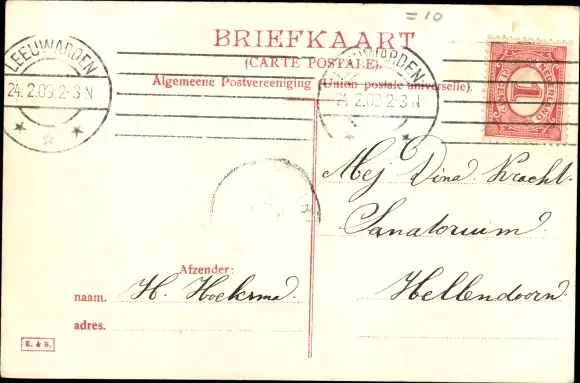 = 10
BRIEFKAART
(CARTE POSTALE).
Algemeene Postvereeniging (Union postale universelle).
LEEUWARDEN
24.2.09.2-3 N
LEEUWARDEN
24.2.09 2-3 N
NEDERLAND
1
CENT
Mej Dina Kracht.
Sanatorium
Hellendoorn.
Afzender:
naam. H. Hoeksma.
adres.
K. & B.